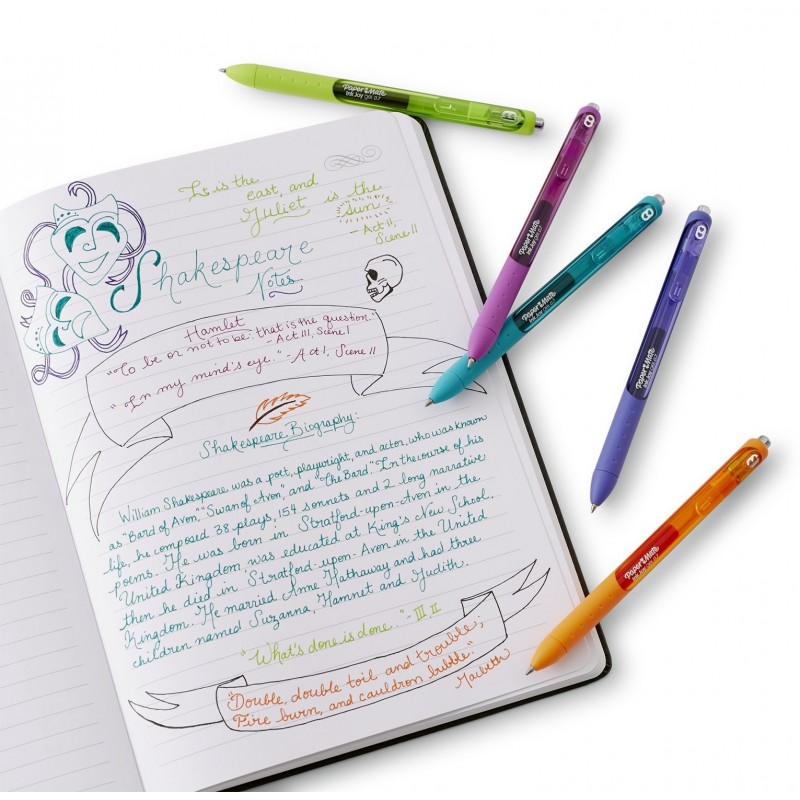 It is the
east, and
Juliet is the
sun
- Act II,
Scene II
Shakespeare
Notes
Hamlet
"To be or not to be: that is the question."
- Act III, Scene I
"In my mind's eye." - Act I, Scene II
Shakespeare Biography:
William Shakespeare was a poet, playwright, and actor, who was known
as "Bard of Avon", "Swan of Avon", and "The Bard." In the course of his
life, he composed 38 plays, 154 sonnets and 2 long narrative
poems. He was born in Stratford-upon-Avon in the
United Kingdom, was educated at King's New School.
then he died in Stratford-upon-Avon in the United
Kingdom. He married Anne Hathaway and had three
children named Suzanna, Hamnet and Judith.
"What's done is done." - III II
"Double, double toil and trouble;
Fire burn, and cauldron bubble."
Macbeth
Paper Mate
InkJoy gel 0.7
Paper Mate
InkJoy gel 0.7
Paper Mate
InkJoy gel 0.7
Paper Mate
InkJoy gel 0.7
Paper Mate
InkJoy gel 0.7